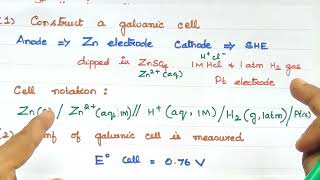 1) Construct a galvanic cell
Anode => Zn electrode Cathode => SHE
H+ Cl-
dipped in ZnSO4 1M HCl & 1 atm H2 gas
Zn2+ (aq) Pt electrode
Cell notation :
Zn / Zn2+ (aq, 1M) // H+ (aq, 1M) / H2 (g, 1atm) / Pt(s)
(2) of galvanic cell is measured
E° cell = 0.76 V